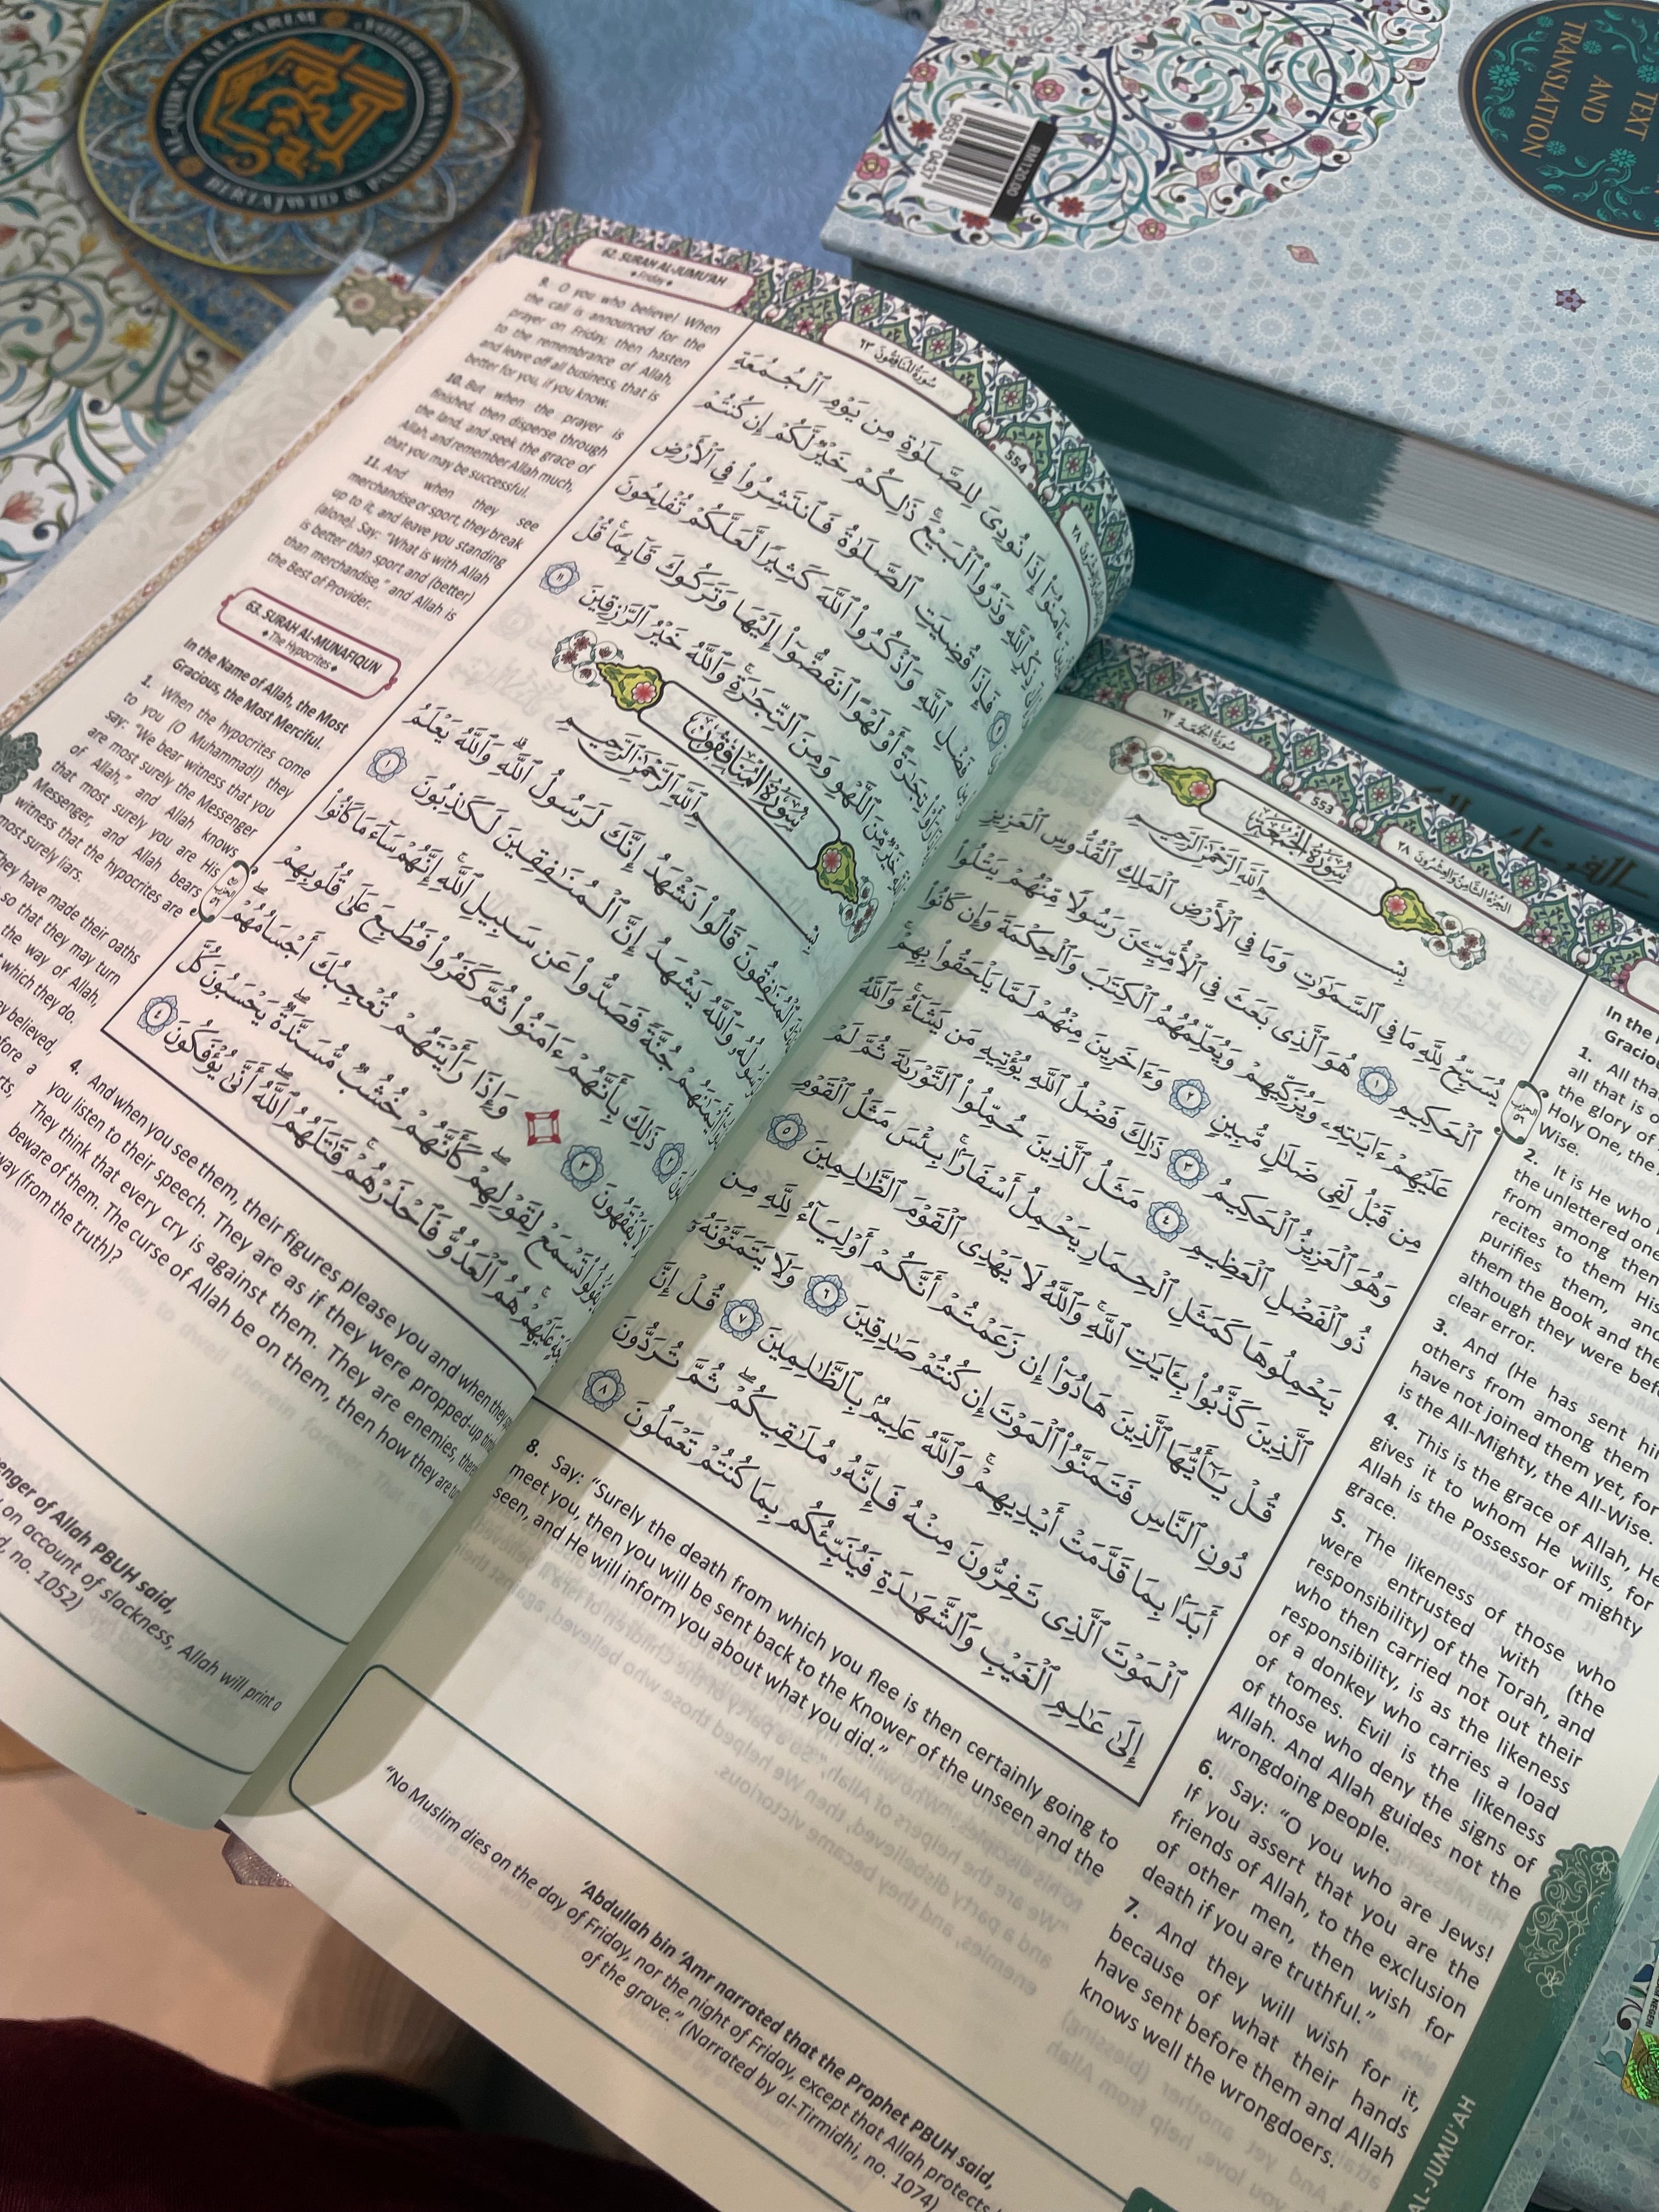 AL-QUR'AN AL-KARIM
BERTAJWID & PANDUAN
RM120.00
9555 0437
TEXT
AND
TRANSLATION
سُورَةُ الجُمُعَة ٦٢
553
الجُزْءُ الثَّامِنُ وَالعِشْرُونَ ٢٨
سُورَةُ الجُمُعَةِ
بِسْمِ ٱللَّهِ ٱلرَّحْمَٰنِ ٱلرَّحِيمِ
يُسَبِّحُ لِلَّهِ مَا فِي ٱلسَّمَٰوَٰتِ وَمَا فِي ٱلْأَرْضِ ٱلْمَلِكِ ٱلْقُدُّوسِ ٱلْعَزِيزِ
ٱلْحَكِيمِ ١ هُوَ ٱلَّذِي بَعَثَ فِي ٱلْأُمِّيِّۦنَ رَسُولًا مِّنْهُمْ يَتْلُوا۟
عَلَيْهِمْ ءَايَٰتِهِۦ وَيُزَكِّيهِمْ وَيُعَلِّمُهُمُ ٱلْكِتَٰبَ وَٱلْحِكْمَةَ وَإِن كَانُوا۟
مِن قَبْلُ لَفِي ضَلَٰلٍ مُّبِينٍ ٢ وَءَاخَرِينَ مِنْهُمْ لَمَّا يَلْحَقُوا۟ بِهِمْ
وَهُوَ ٱلْعَزِيزُ ٱلْحَكِيمُ ٣ ذَٰلِكَ فَضْلُ ٱللَّهِ يُؤْتِيهِ مَن يَشَآءُ وَٱللَّهُ
ذُو ٱلْفَضْلِ ٱلْعَظِيمِ ٤ مَثَلُ ٱلَّذِينَ حُمِّلُوا۟ ٱلتَّوْرَىٰةَ ثُمَّ لَمْ
يَحْمِلُوهَا كَمَثَلِ ٱلْحِمَارِ يَحْمِلُ أَسْفَارًۢا بِئْسَ مَثَلُ ٱلْقَوْمِ
ٱلَّذِينَ كَذَّبُوا۟ بِـَٔايَٰتِ ٱللَّهِ وَٱللَّهُ لَا يَهْدِي ٱلْقَوْمَ ٱلظَّٰلِمِينَ ٥
قُلْ يَٰٓأَيُّهَا ٱلَّذِينَ هَادُوٓا۟ إِن زَعَمْتُمْ أَنَّكُمْ أَوْلِيَآءُ لِلَّهِ مِن
دُونِ ٱلنَّاسِ فَتَمَنَّوُا۟ ٱلْمَوْتَ إِن كُنتُمْ صَٰدِقِينَ ٦ وَلَا يَتَمَنَّوْنَهُۥٓ
أَبَدًۢا بِمَا قَدَّمَتْ أَيْدِيهِمْ وَٱللَّهُ عَلِيمٌۢ بِٱلظَّٰلِمِينَ ٧ قُلْ إِنَّ
ٱلْمَوْتَ ٱلَّذِي تَفِرُّونَ مِنْهُ فَإِنَّهُۥ مُلَٰقِيكُمْ ثُمَّ تُرَدُّونَ
إِلَىٰ عَٰلِمِ ٱلْغَيْبِ وَٱلشَّهَٰدَةِ فَيُنَبِّئُكُم بِمَا كُنتُمْ تَعْمَلُونَ ٨
الحزب
٥٦
In the
Gracio
1. All tha
all that is o
the glory of
Holy One, the
Wise.
2. It is He who
the unlettered one
from among them
recites to them His
purifies them, and
them the Book and the
although they were befo
clear error.
3. And (He has sent hi
others from among them
have not joined them yet, for
is the All-Mighty, the All-Wise.
4. This is the grace of Allah, He
gives it to whom He wills, for
Allah is the Possessor of mighty
grace.
5. The likeness of those who
were entrusted with (the
responsibility) of the Torah, and
who then carried not out their
responsibility, is as the likeness
of a donkey who carries a load
of tomes. Evil is the likeness
of those who deny the signs of
Allah. And Allah guides not the
wrongdoing people.
6. Say: “O you who are Jews!
If you assert that you are the
friends of Allah, to the exclusion
of other men, then wish for
death if you are truthful.”
7. And they will wish for it,
because of what their hands
have sent before them and Allah
knows well the wrongdoers.
8. Say: “Surely the death from which you flee is then certainly going to
meet you, then you will be sent back to the Knower of the unseen and the
seen, and He will inform you about what you did.”
‘Abdullah bin ‘Amr narrated that the Prophet PBUH said,
“No Muslim dies on the day of Friday, nor the night of Friday, except that Allah protects
of the grave.” (Narrated by al-Tirmidhi, no. 1074)
AL-JUMU‘AH
62. SURAH AL-JUMU‘AH
Friday
سُورَةُ المُنَافِقُونَ ٦٣
554
٢٨
ءَامَنُوٓا۟ إِذَا نُودِيَ لِلصَّلَوٰةِ مِن يَوْمِ ٱلْجُمُعَةِ
ذِكْرِ ٱللَّهِ وَذَرُوا۟ ٱلْبَيْعَ ذَٰلِكُمْ خَيْرٌ لَّكُمْ إِن كُنتُمْ
فَإِذَا قُضِيَتِ ٱلصَّلَوٰةُ فَٱنتَشِرُوا۟ فِي ٱلْأَرْضِ
فَضْلِ ٱللَّهِ وَٱذْكُرُوا۟ ٱللَّهَ كَثِيرًا لَّعَلَّكُمْ تُفْلِحُونَ
تِجَٰرَةً أَوْ لَهْوًا ٱنفَضُّوٓا۟ إِلَيْهَا وَتَرَكُوكَ قَآئِمًا قُلْ
خَيْرٌ مِّنَ ٱللَّهْوِ وَمِنَ ٱلتِّجَٰرَةِ وَٱللَّهُ خَيْرُ ٱلرَّٰزِقِينَ ١١
سُورَةُ المُنَافِقُونَ
بِسْمِ ٱللَّهِ ٱلرَّحْمَٰنِ ٱلرَّحِيمِ
ٱلْمُنَٰفِقُونَ قَالُوا۟ نَشْهَدُ إِنَّكَ لَرَسُولُ ٱللَّهِ وَٱللَّهُ يَعْلَمُ
لَرَسُولُهُۥ وَٱللَّهُ يَشْهَدُ إِنَّ ٱلْمُنَٰفِقِينَ لَكَٰذِبُونَ ١
أَيْمَٰنَهُمْ جُنَّةً فَصَدُّوا۟ عَن سَبِيلِ ٱللَّهِ إِنَّهُمْ سَآءَ مَا كَانُوا۟
٢ ذَٰلِكَ بِأَنَّهُمْ ءَامَنُوا۟ ثُمَّ كَفَرُوا۟ فَطُبِعَ عَلَىٰ قُلُوبِهِمْ
لَا يَفْقَهُونَ ٣ وَإِذَا رَأَيْتَهُمْ تُعْجِبُكَ أَجْسَامُهُمْ
يَقُولُوا۟ تَسْمَعْ لِقَوْلِهِمْ كَأَنَّهُمْ خُشُبٌ مُّسَنَّدَةٌ يَحْسَبُونَ كُلَّ
عَلَيْهِمْ هُمُ ٱلْعَدُوُّ فَٱحْذَرْهُمْ قَٰتَلَهُمُ ٱللَّهُ أَنَّىٰ يُؤْفَكُونَ ٤
9. O you who believe! When
the call is announced for the
prayer on Friday, then hasten
to the remembrance of Allah,
and leave off all business, that is
better for you, if you know.
10. But when the prayer is
finished, then disperse through
the land, and seek the grace of
Allah, and remember Allah much,
that you may be successful.
11. And when they see
merchandise or sport, they break
up to it, and leave you standing
(alone). Say: “What is with Allah
is better than sport and (better)
than merchandise,” and Allah is
the Best of Provider.
63. SURAH AL-MUNAFIQUN
The Hypocrites
In the Name of Allah, the Most
Gracious, the Most Merciful.
1. When the hypocrites come
to you (O Muhammad!) they
say: “We bear witness that you
are most surely the Messenger
of Allah,” and Allah knows
that most surely you are His
Messenger, and Allah bears
witness that the hypocrites are
most surely liars.
They have made their oaths
so that they may turn
the way of Allah,
which they do.
believed,
4. And when you see them, their figures please you and when they
you listen to their speech. They are as if they were propped-up
They think that every cry is against them. They are enemies,
beware of them. The curse of Allah be on them, then how they are
way (from the truth)?
enger of Allah PBUH said,
on account of slackness, Allah will print a
no. 1052)